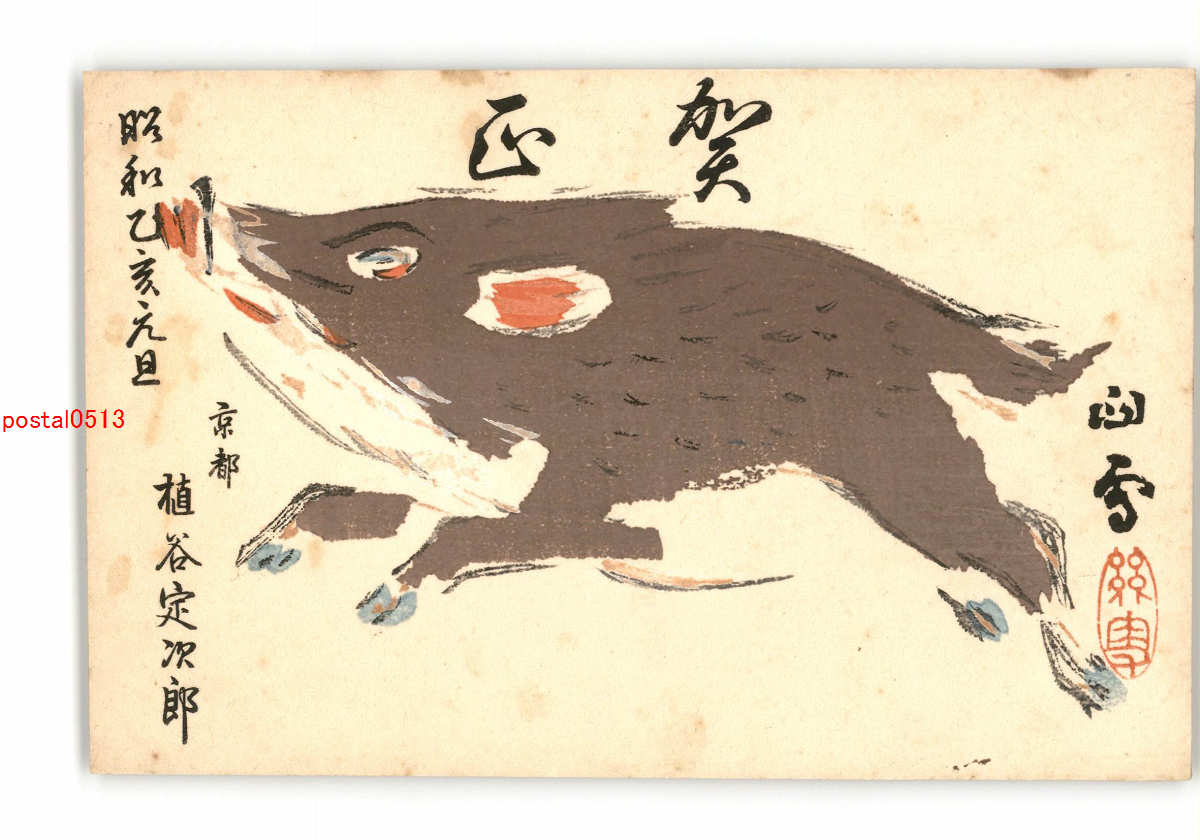 賀正
昭和乙亥元旦
京都
植谷定次郎
postal0513